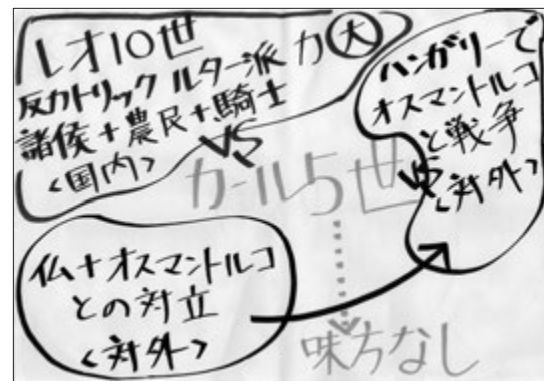 レオ10世
反カトリック ルター派 力大
諸侯+農民+騎士
<国内>
VS
カール5世
VS
ハンガリーで
オスマントルコ
と戦争
<対外>
仏+オスマントルコ
との対立
<対外>
味方なし